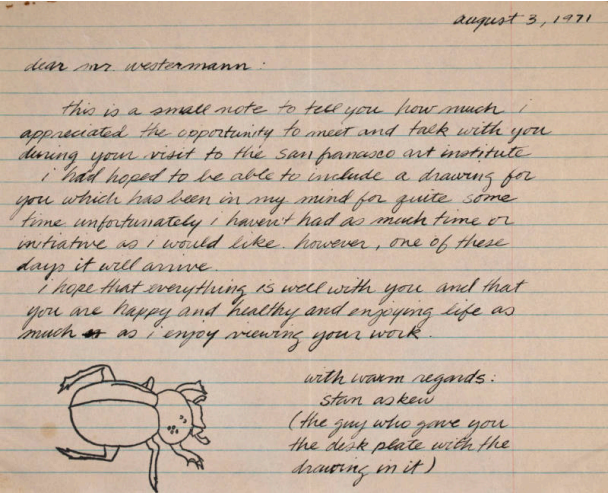 august 3, 1971
dear mr. westermann:
this is a small note to tell you how much i
appreciated the opportunity to meet and talk with you
during your visit to the san francisco art institute
i had hoped to be able to include a drawing for
you which has been in my mind for quite some
time unfortunately i haven't had as much time or
initiative as i would like. however, one of these
days it will arrive.
i hope that everything is well with you and that
you are happy and healthy and enjoying life as
much as i enjoy viewing your work.
with warm regards:
stan askew
(the guy who gave you
the desk plate with the
drawing in it)